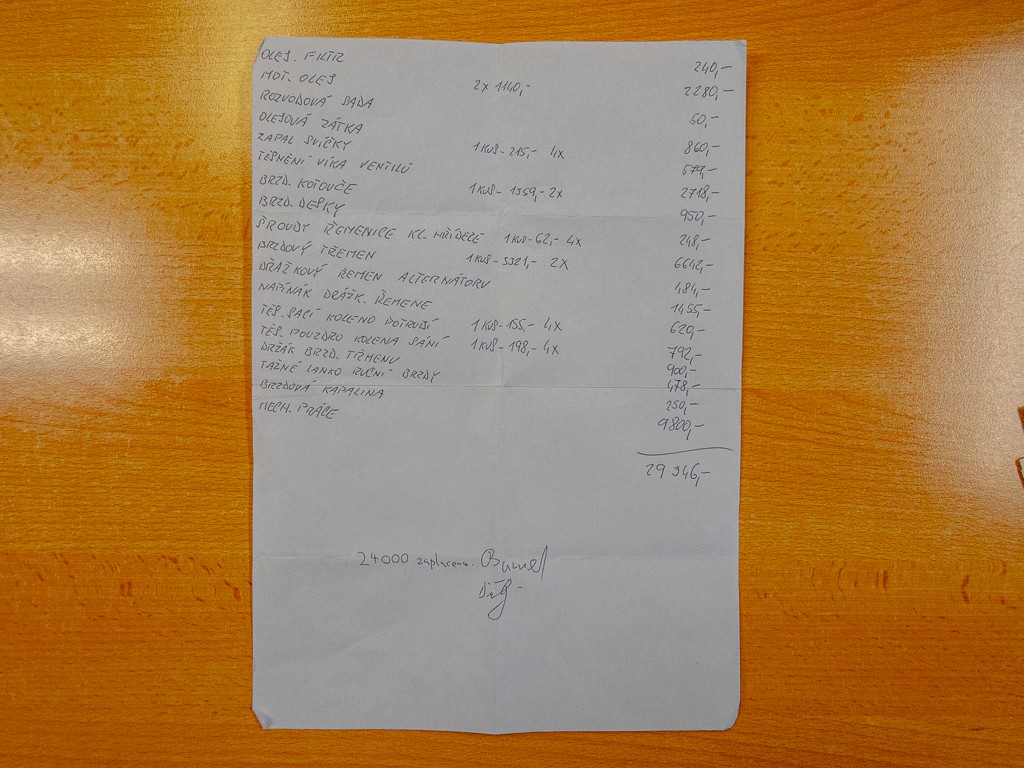 OLEJ. FILTR 240,-
MOT. OLEJ 2x 1140,- 2280,-
ROZVODOVÁ SADA
OLEJOVÁ ZÁTKA 50,-
ZAPAL SVÍČKY 1 KUS - 215,- 4x 860,-
TĚSNĚNÍ VÍKA VENTILŮ 579,-
BRZD. KOTOUČE 1 KUS - 1359,- 2x 2718,-
BRZD. DESKY 950,-
ŠROUBY ŘEMENICE KL. HŘÍDELE 1 KUS - 62,- 4x 248,-
BRZDOVÝ TŘEMEN 1 KUS - 3321,- 2x 6642,-
DRÁŽKOVÝ ŘEMEN ALTERNÁTORU 484,-
NAPÍNÁK DRÁŽK. ŘEMENE 1455,-
TĚS. SACÍ KOLENO POTRUBÍ 1 KUS - 155,- 4x 620,-
TĚS. POUZDRO KOLENA SÁNÍ 1 KUS - 198,- 4x 792,-
DRŽÁK BRZD. TŘMENU 900,-
TAŽNÉ LANKO RUČNÍ BRZDY 478,-
BRZDOVÁ KAPALINA 250,-
MECH. PRÁCE 9800,-
29 346,-
24000 zaplaceno.